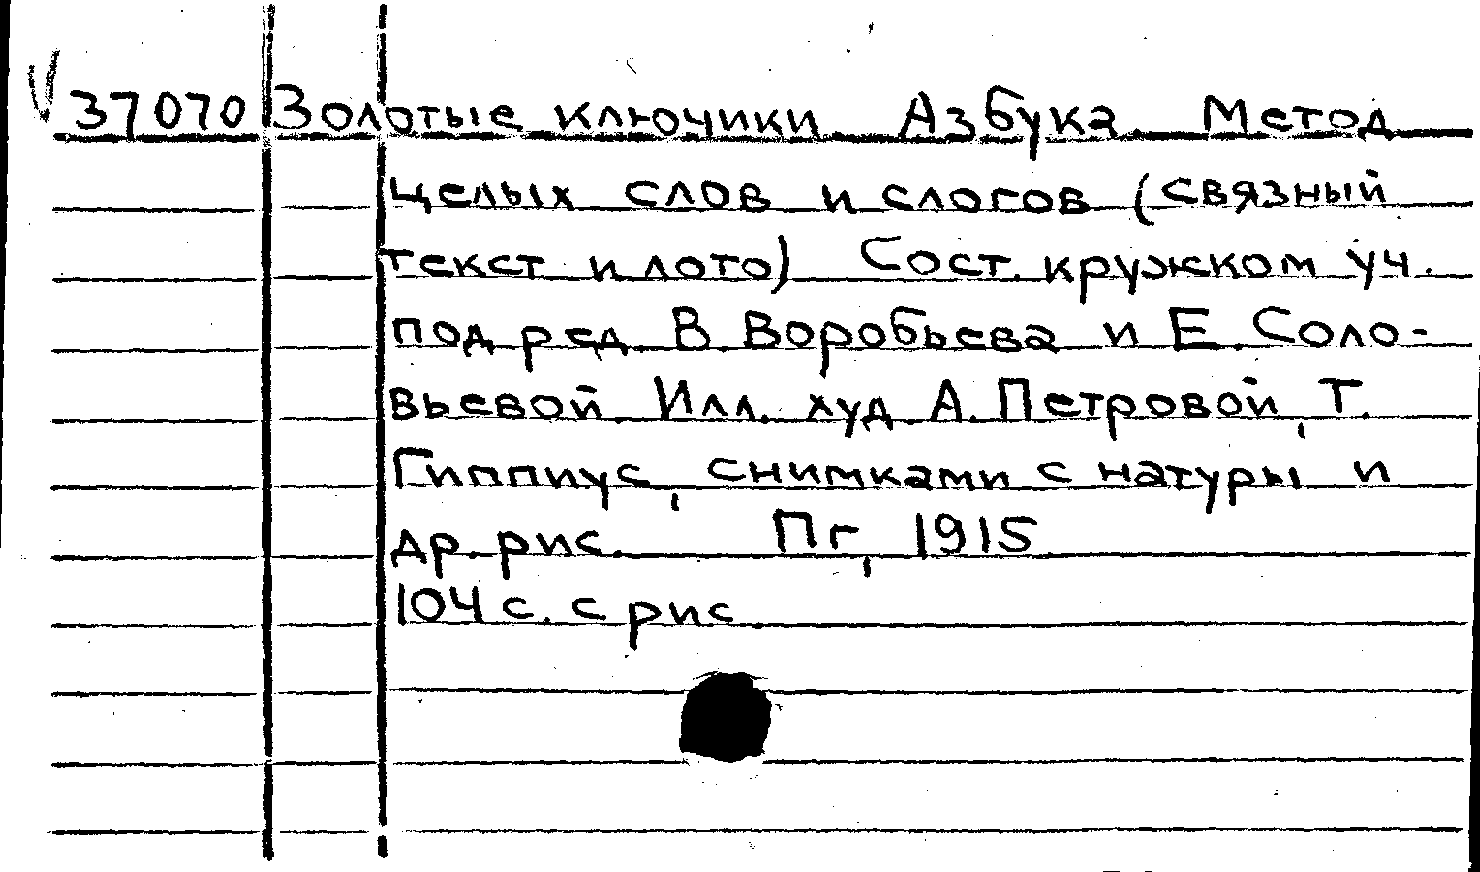 37070 Золотые ключики. Азбука. Метод
целых слов и слогов (связный
текст и лото). Сост. кружком уч.
под ред. В. Воробьева и Е. Соло-
вьевой. Илл. худ. А. Петровой, Т.
Гиппиус, снимками с натуры и
др. рис. Пг, 1915
104 с. с рис.